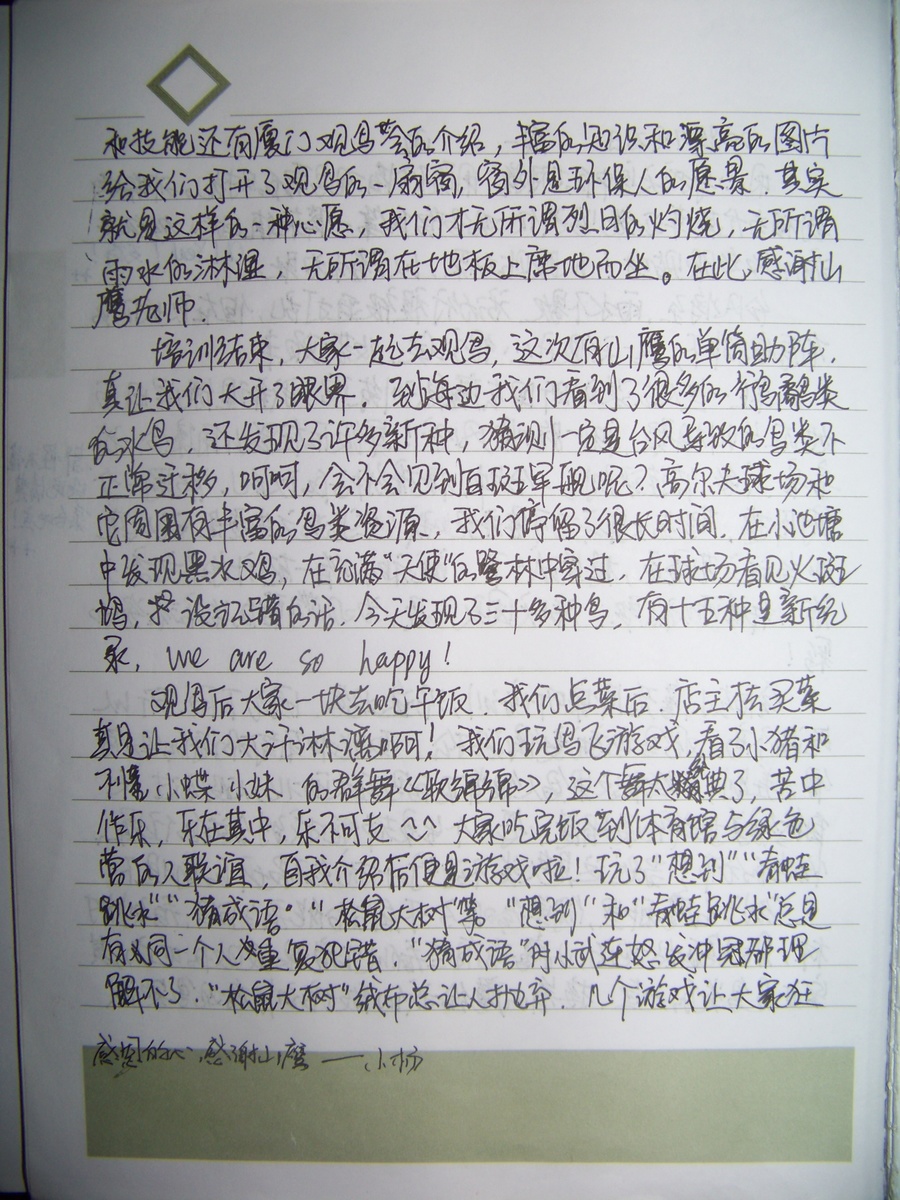 和技能还有厦门观鸟会的介绍，丰富的知识和漂亮的图片
给我们打开了观鸟的一扇窗，窗外是环保人的愿景。其实
就是这样的一种心愿，我们才无所谓烈日的灼烧，无所谓
雨水的淋湿，无所谓在地板上席地而坐。在此，感谢山
鹰老师.
培训结束，大家一起去观鸟，这次有山鹰的单筒助阵.
真让我们大开了眼界. 到海边我们看到了很多的行鸟鹬类
的水鸟，还发现了许多新种，猜测一定是台风导致的鸟类不
正常迁移，呵呵，会不会见到白斑军舰呢？高尔夫球场和
它周围有丰富的鸟类资源，我们停留了很长时间. 在小池塘
中发现黑水鸡，在充满“天使”的鹭林中穿过，在球场看见火斑
鸠，没记错的话，今天发现了三十多种鸟，有十五种是新纪
录，we are so happy!
观鸟后大家一块去吃午饭. 我们点菜后，店主去买菜
真是让我们大汗淋漓啊！我们玩鸟飞游戏，看了小猪和
小蝶 小妹 的群舞《欢编编》，这个舞太经典了，苦中
作乐，乐在其中，乐不可支 ^^ 大家吃完饭到体育馆与绿色
营的人联谊，自我介绍后便是游戏啦！玩了“想到”“青蛙
跳水”“猜成语”“松鼠大树”等. “想到”和“青蛙跳水”总是
有同一个人重复犯错. “猜成语”时小武连怒发冲冠都理
解不了. “松鼠大树”绒布总让人抛弃. 几个游戏让大家狂
感恩的心，感谢山鹰 —— 小杨